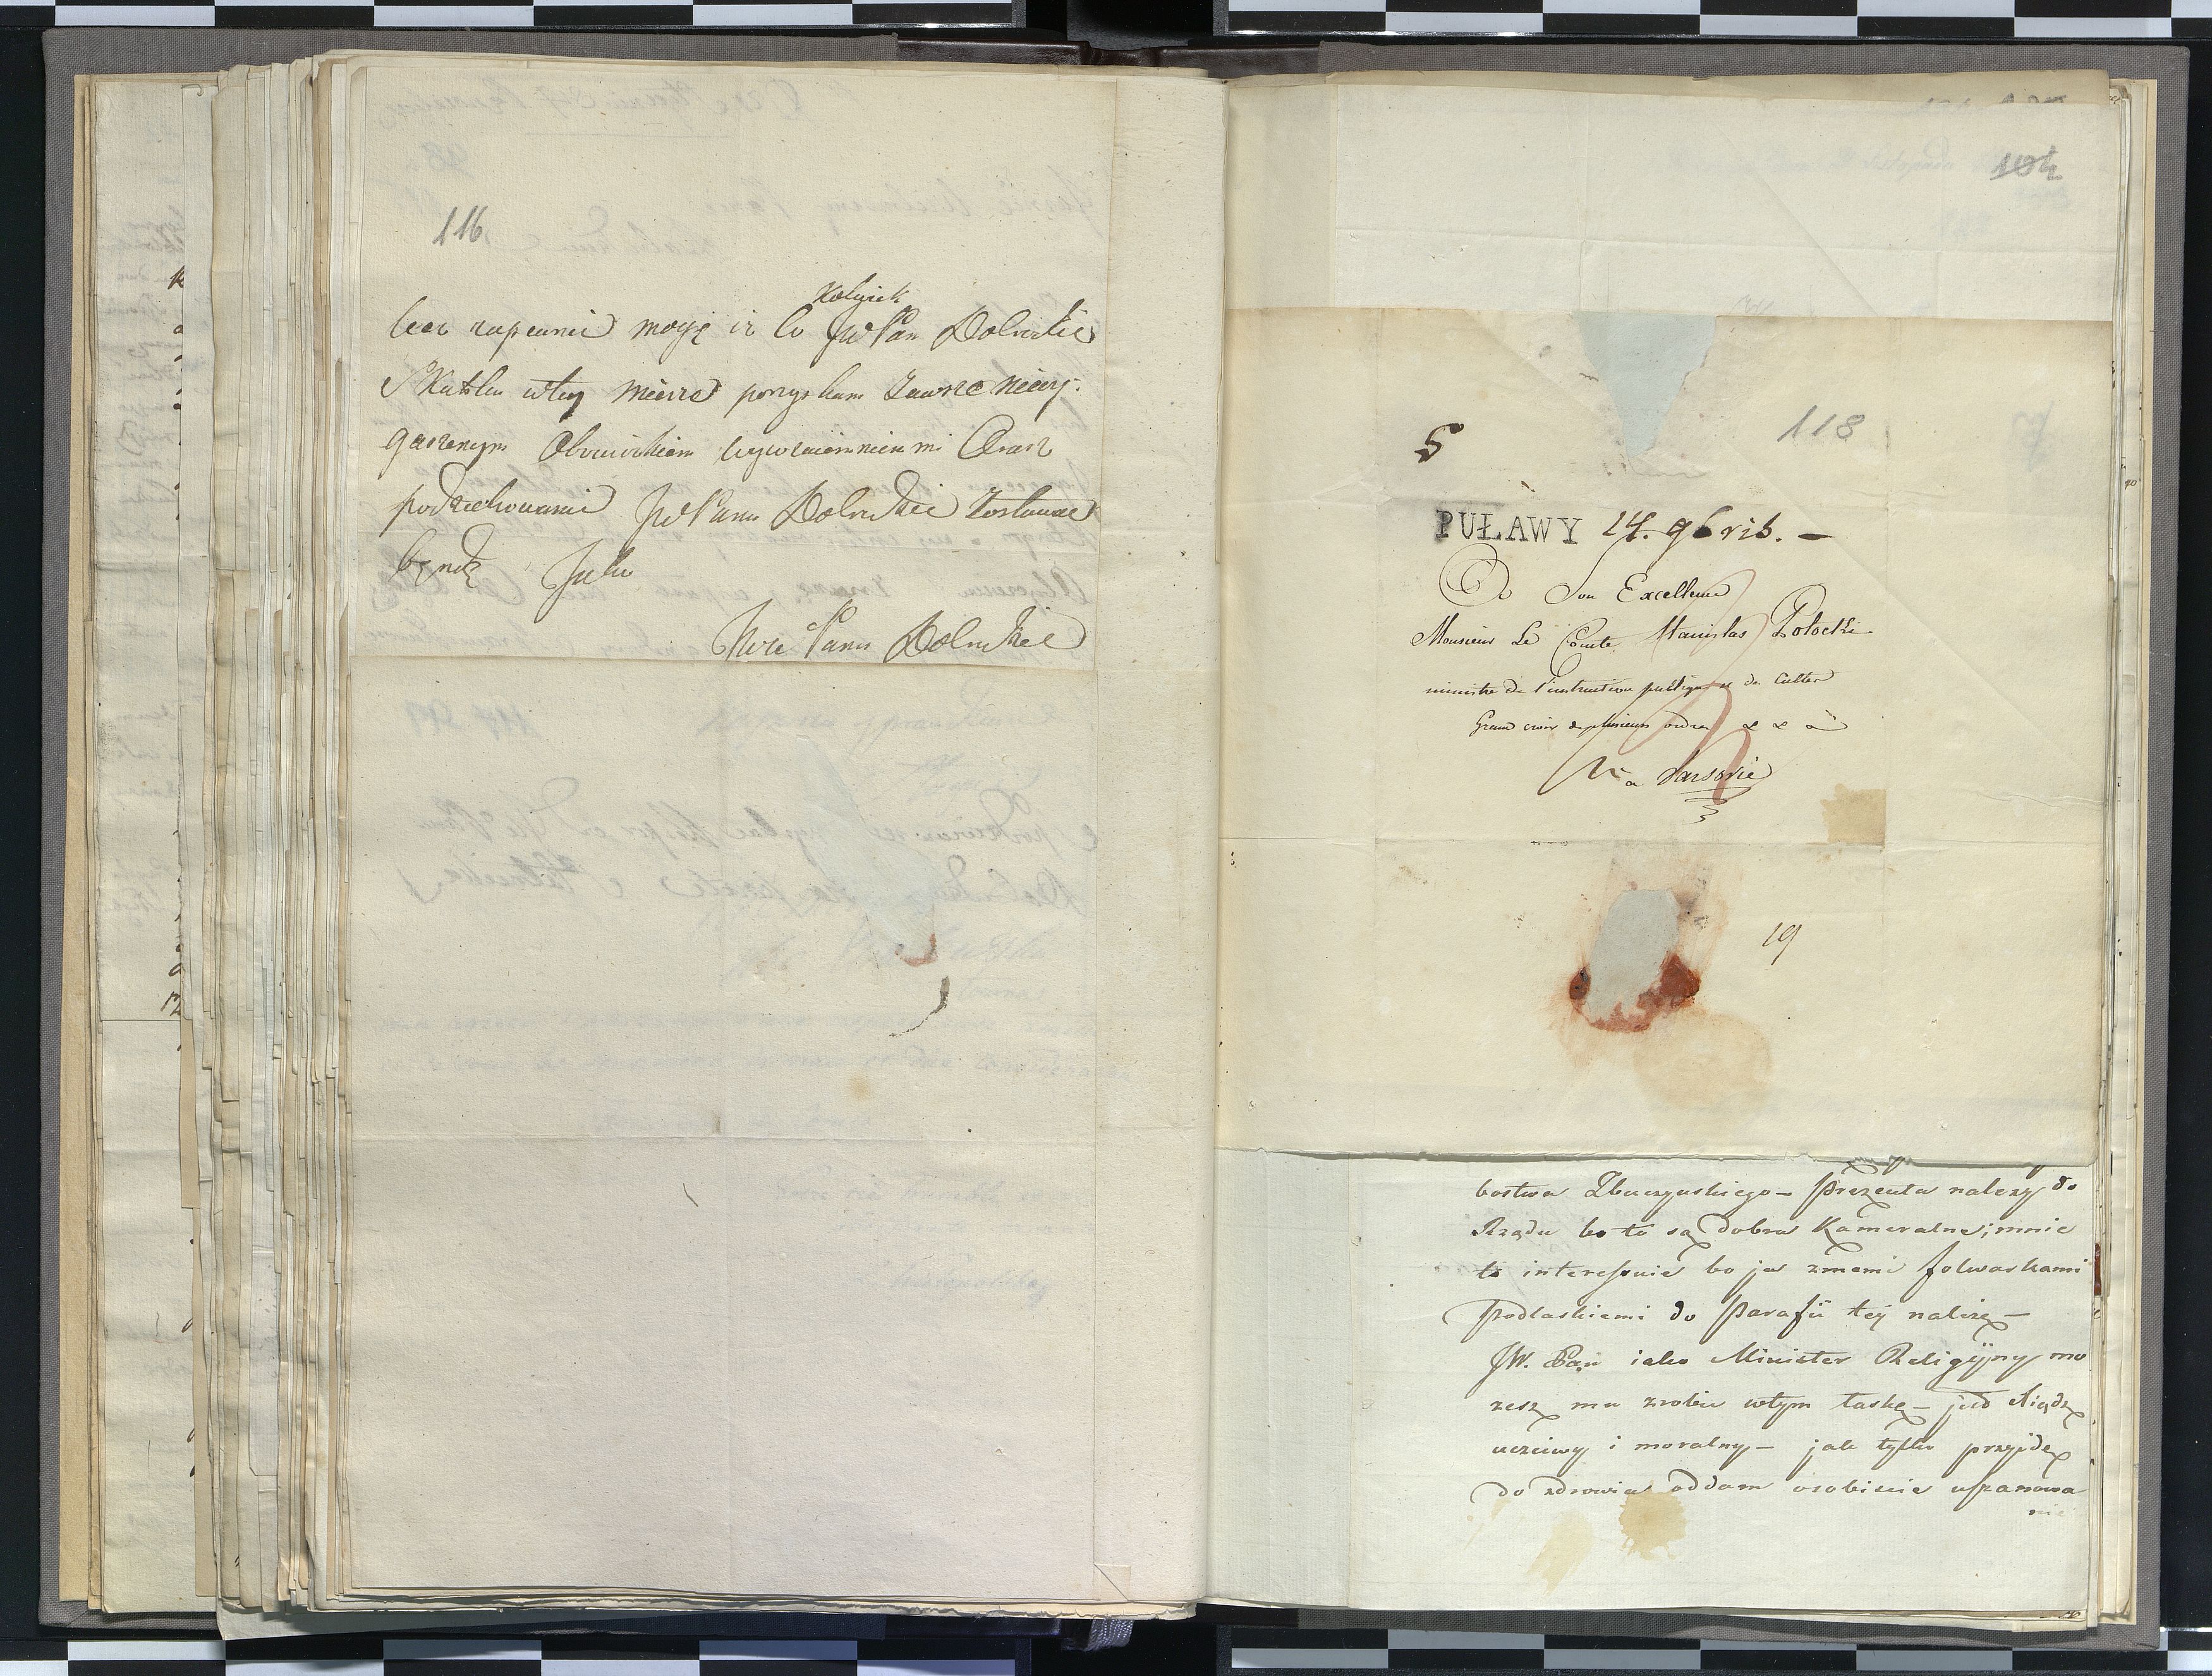 116
Kolyiek
lecz zapewnić mogę iż Co JW Pan Dobrodzie
w tey mierze pozyskam zawsze niewy-
gaszonym Obowiązkiem Oraz
podziękowanie JW Pana Dobrodzieie zostawać
będę Jako
JWże Pana Dobrodzieie
104
118
5
PUŁAWY 14. 9bris. —
A Son Excellence
Monsieur Le Comte Stanislas Potocki
ministre de l'instruction publique et des Cultes
Grand croix de plusieurs ordres & & à
Varsovie
19
bostwa Zbuczynskiego — Prezenta nalezy do
Rządu bo to są dobra Kameralne; mnie
to interesuie bo ja zmemi folwarkami
Podlaskiemi do Parafii tej należę —
JW. Pan iako Minister Religijny mo
zesz mu zrobic wtym łaskę — jest Xiądz
uczciwy i moralny — jak tylko przyjdę
do zdrowia oddam osobiscie uszanowa
nie